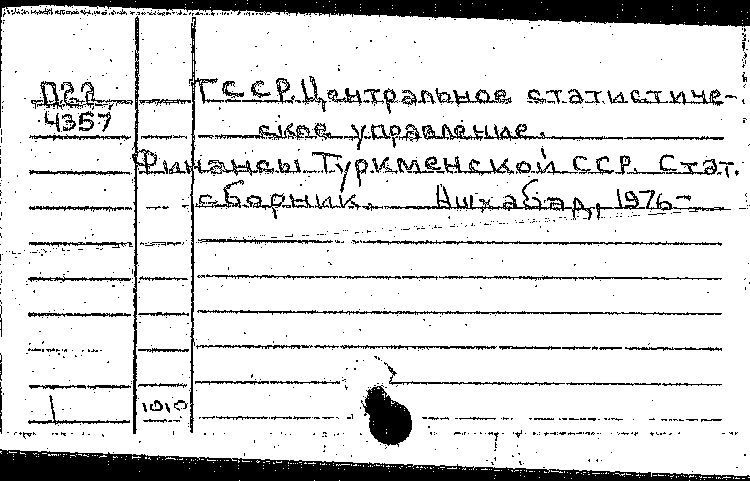 П22
4357
ТССР. Центральное статистиче-
ское управление.
Финансы Туркменской ССР. Стат.
сборник. Ашхабад, 1976-
1010